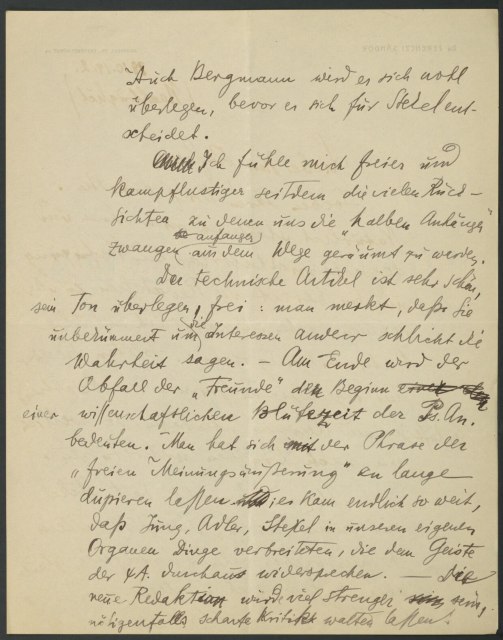 Auch Bergmann wird es sich wohl
überlegen, bevor er sich für Stekel ent-
scheidet.
Ich fühle mich freier und
kampflustiger seitdem die vielen Rück-
sichten zu denen uns die „halben Anhänger"
zwangen anfangen aus dem Wege geräumt zu werden.
Der technische Artikel ist sehr schön,
sein Ton überlegen, frei: man merkt, dass Sie
unbekümmert um die Interessen anderer schlicht die
Wahrheit sagen. – Am Ende wird der
Abfall der „Freunde" den Beginn
einer wissenschaftlichen Blütezeit der Ps.An.
bedeuten. Man hat sich mit der Phrase der
„freien Meinungsäußerung" zu lange
dupieren lassen; es kam endlich so weit,
daß Jung, Adler, Stekel in unseren eigenen
Organen Dinge verbreiteten, die dem Geiste
der ΨA. durchaus widersprechen. — Die
neue Redaktion wird viel strenger sein,
nötigenfalls scharfe Kritik walten lassen.